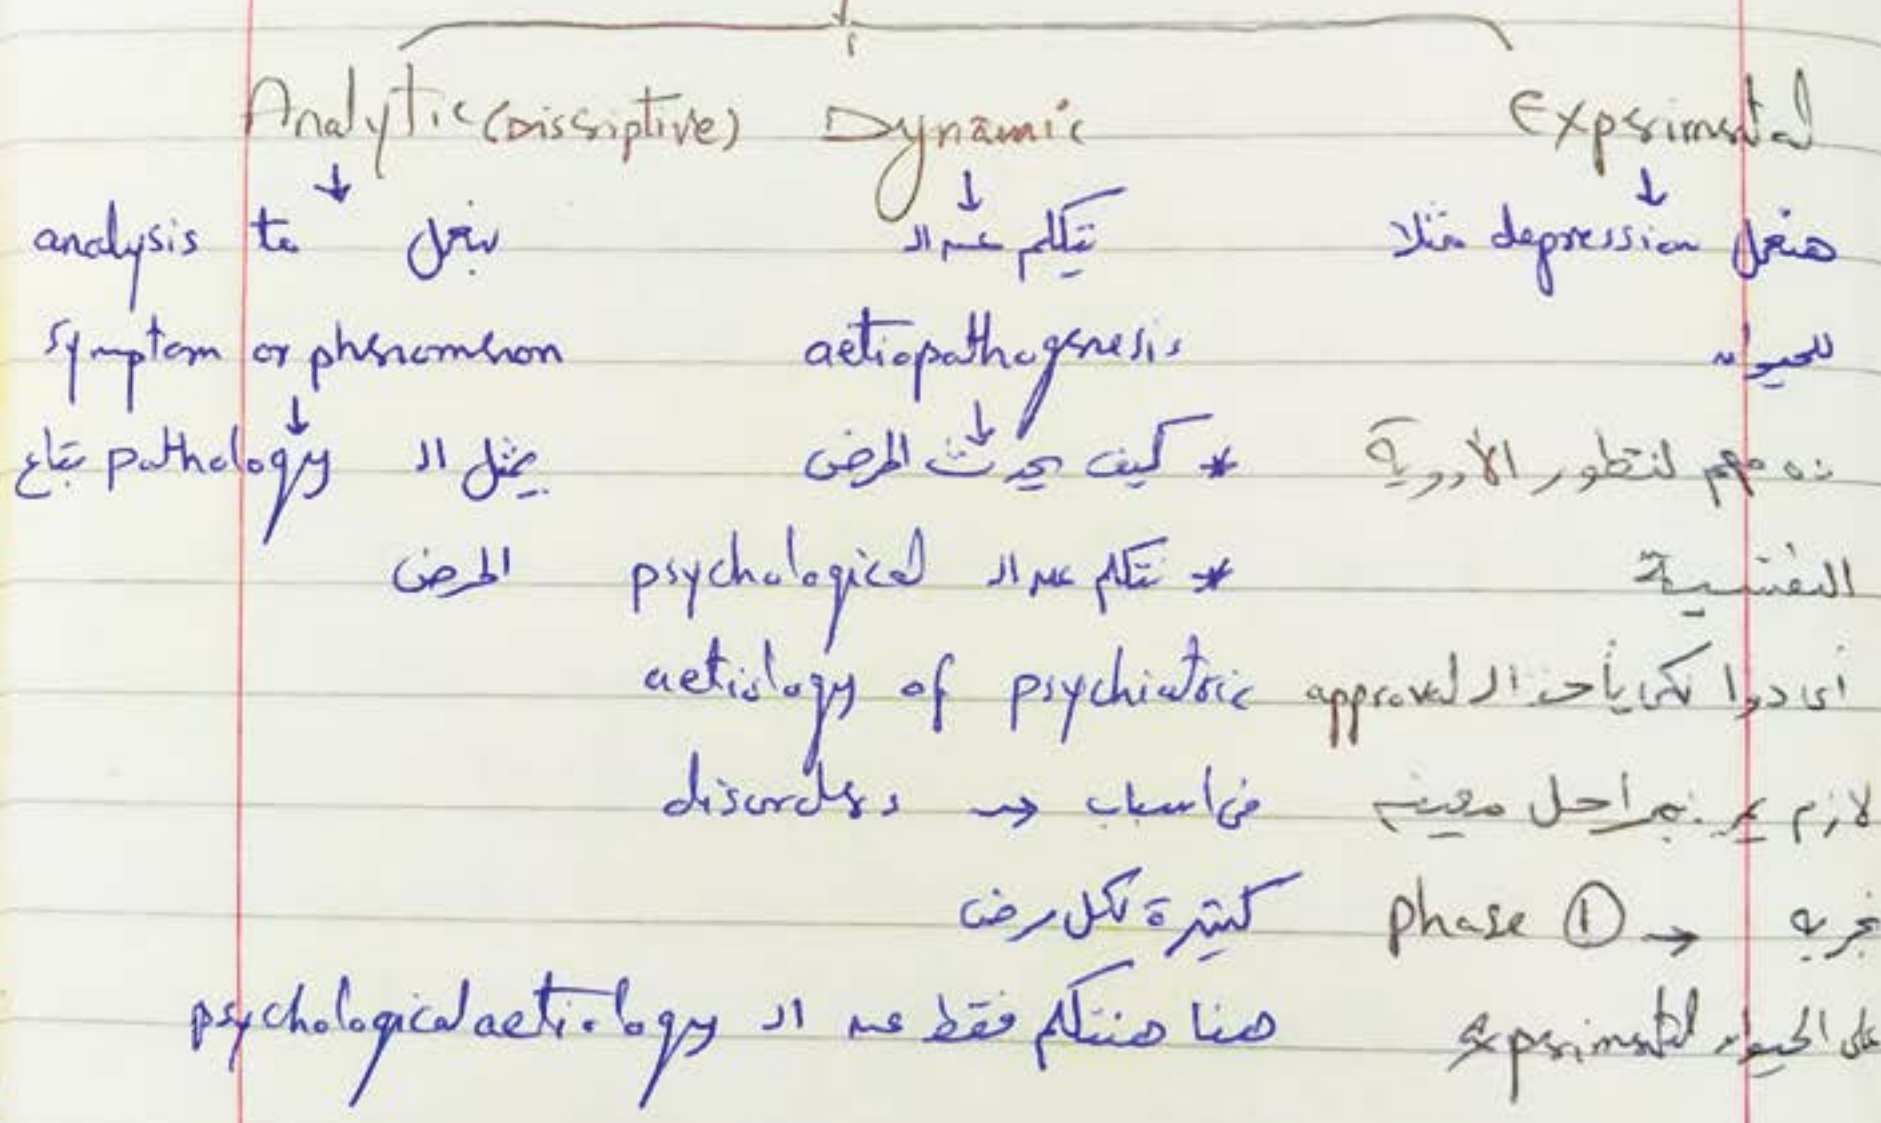 Analytic (Dissriptive)
↓
بنعمل analysis to
symptom or phenomenon
↓
يمثل ال pathology بتاع
المرض
Dynamic
↓
نتكلم عن ال
aetiopathogenesis
↓
* كيف يحدث المرض
* نتكلم عن ال psychological
aetiology of psychiatric
disorders → في اسباب
كتيرة لكل مرض
هنا هنتكلم فقط عن ال psychological aetiology
Experimental
↓
هنعمل depression مثلا
للحيوان
ده مهم لتطور الأدوية
النفسية
اى دوا لكى يأخذ ال approval
لازم يمر بمراحل معينه
phase ① → تجربه
على الحيوان experimental